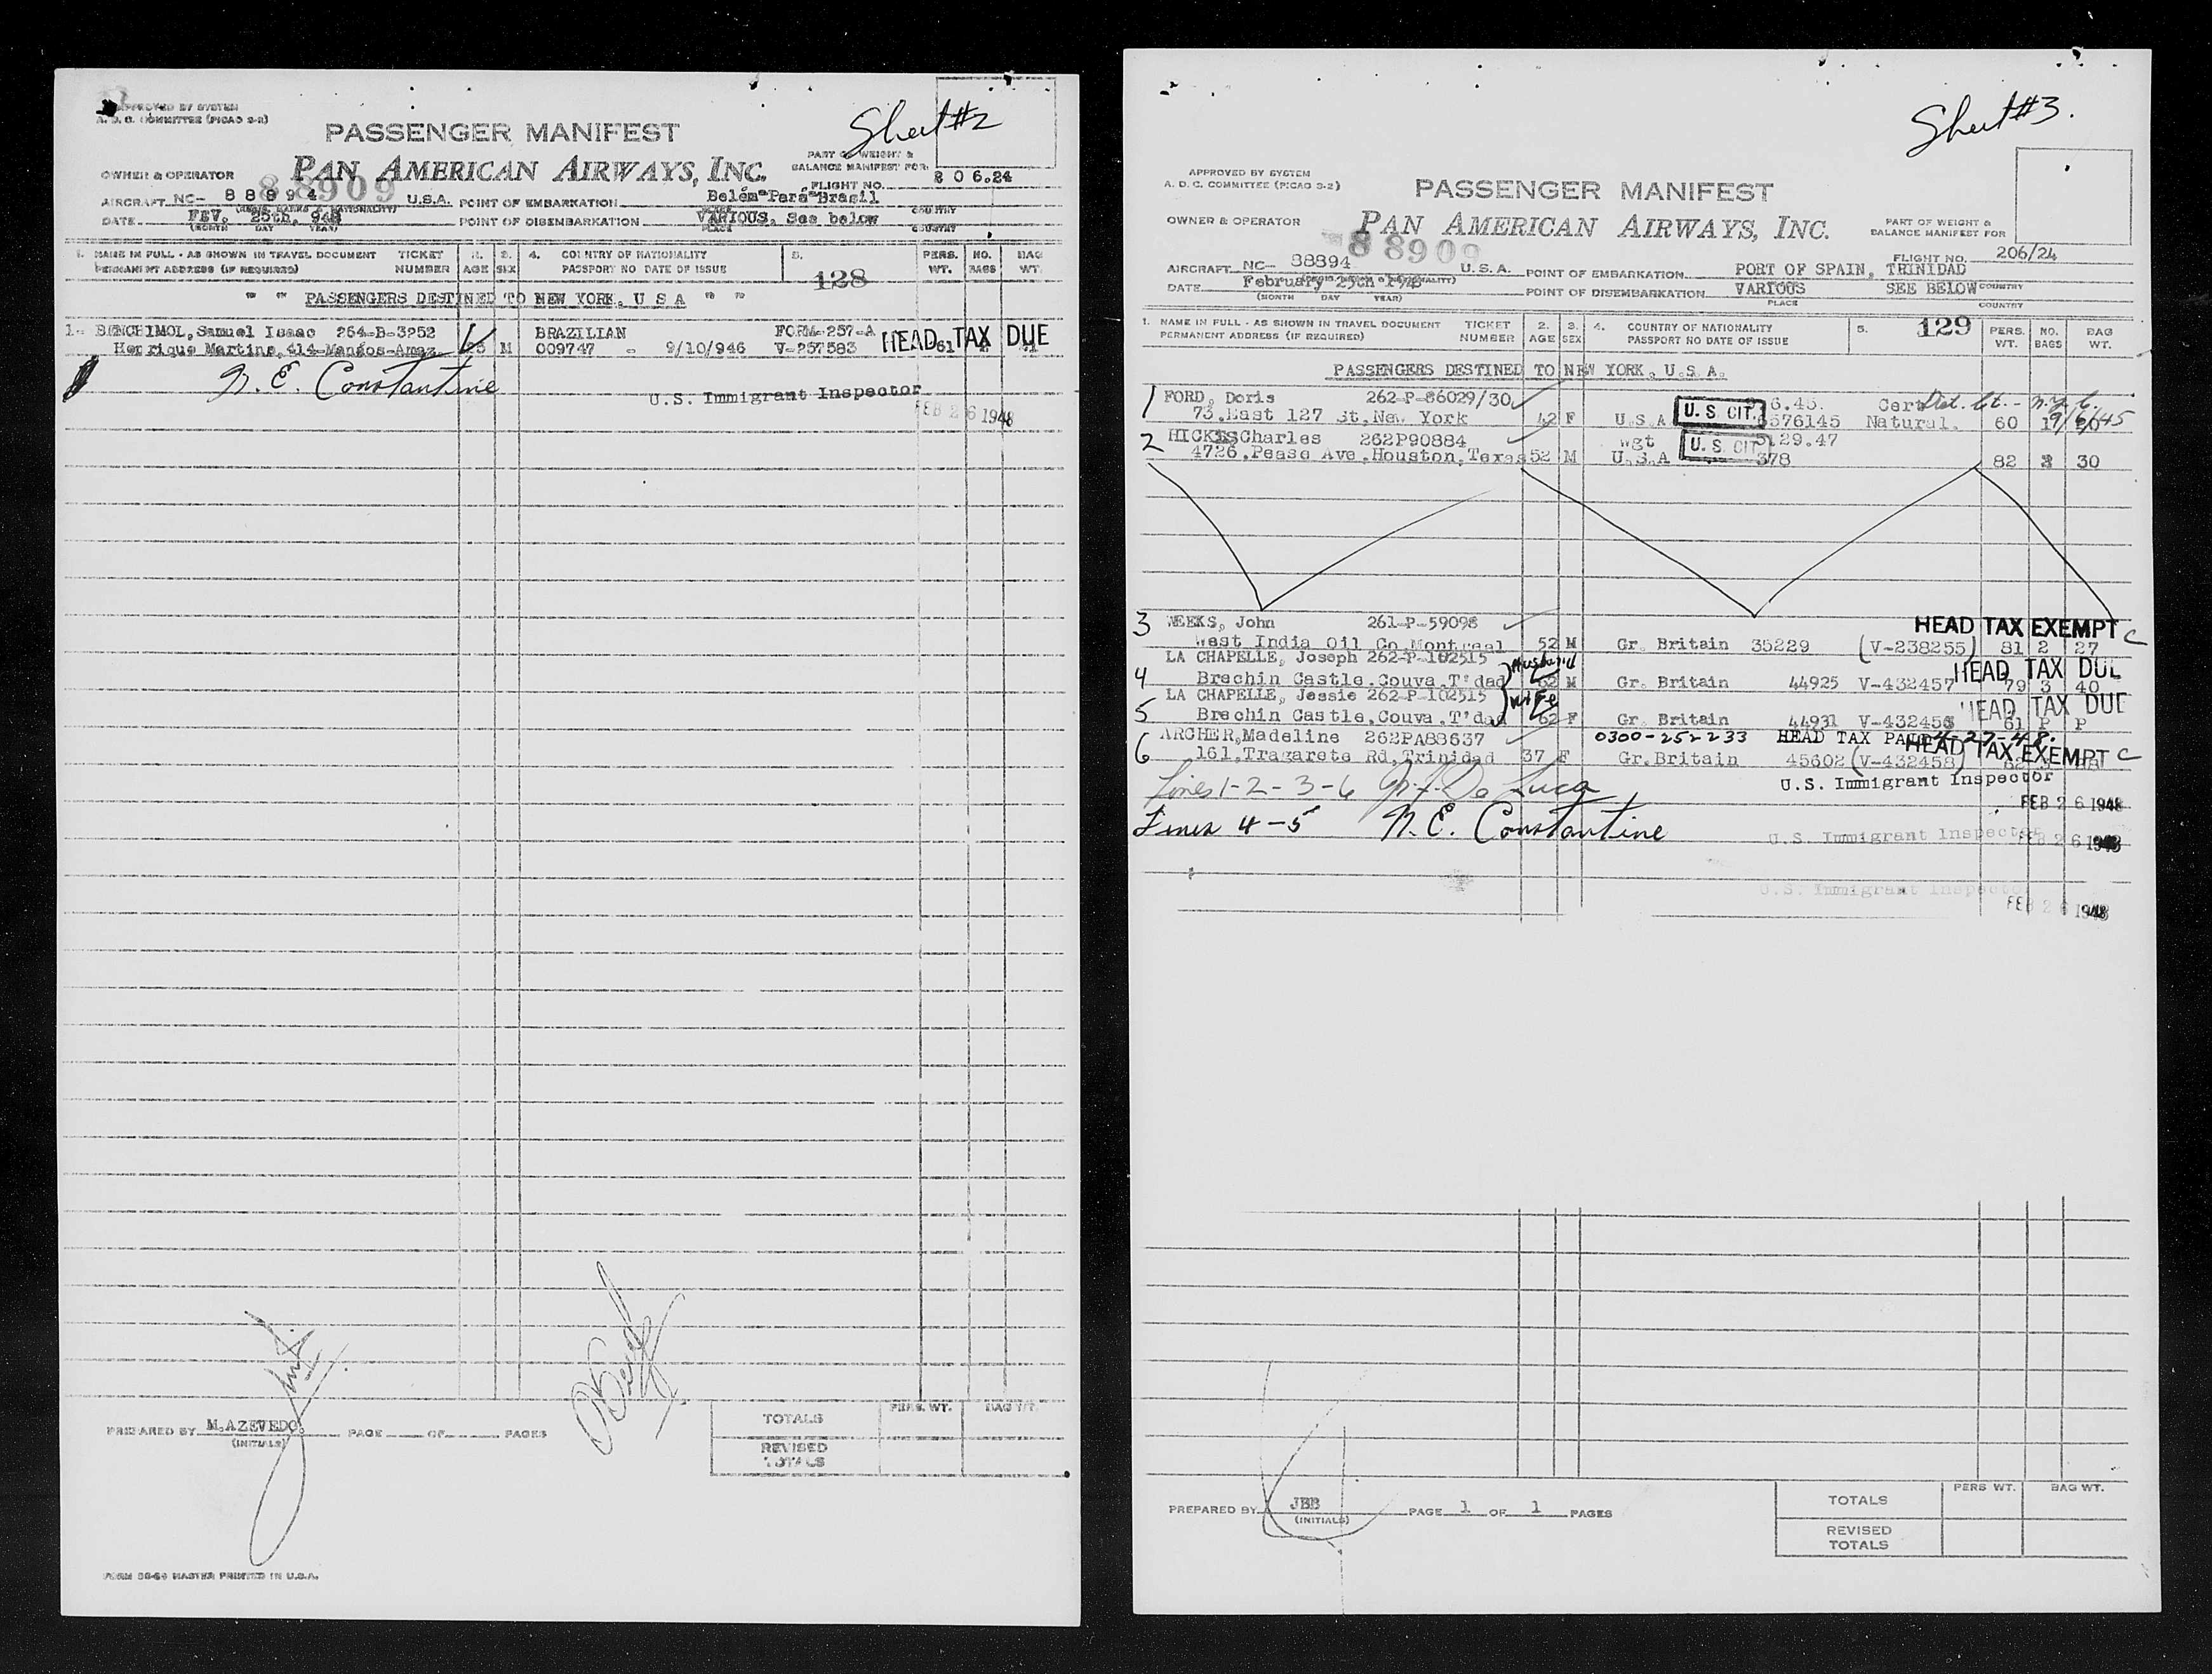 APPROVED BY SYSTEM
A. D. C. COMMITTEE (PICAO S-2)
Sheet #2
PASSENGER MANIFEST
PART OF WEIGHT &
BALANCE MANIFEST FOR
OWNER & OPERATOR
PAN AMERICAN AIRWAYS, INC.
FLIGHT NO. 206.24
88909
AIRCRAFT NC- 88894 U.S.A. POINT OF EMBARKATION Belém-Pará-Brasil
COUNTRY
DATE FEV. 25th, 948 POINT OF DISEMBARKATION VARIOUS, See below
(MONTH DAY YEAR) PLACE COUNTRY
1. NAME IN FULL - AS SHOWN IN TRAVEL DOCUMENT TICKET 2. 3. 4. COUNTRY OF NATIONALITY 5. PERS. NO. BAG
PERMANENT ADDRESS (IF REQUIRED) NUMBER AGE SEX PASSPORT NO DATE OF ISSUE 128 WT. BAGS WT.
" " PASSENGERS DESTINED TO NEW YORK, U S A " "
1- BENCHIMOL, Samuel Isaac 264-B-3252 BRAZILIAN FORM-257-A HEAD TAX DUE
Henrique Martins, 414-Manáos-Amaz M 009747 - 9/10/946 V-257583 61
N. E. Constantine U.S. Immigrant Inspector
FEB 26 1948
PREPARED BY M.AZEVEDO. PAGE OF PAGES
(INITIALS)
TOTALS PERS. WT. BAG WT.
REVISED
TOTALS
FORM MASTER PRINTED IN U.S.A.
Sheet #3.
APPROVED BY SYSTEM
A. D. C. COMMITTEE (PICAO S-2)
PASSENGER MANIFEST
OWNER & OPERATOR
PAN AMERICAN AIRWAYS, INC.
PART OF WEIGHT &
BALANCE MANIFEST FOR
88909
FLIGHT NO. 206/24
AIRCRAFT NC- 88894 U.S.A. POINT OF EMBARKATION PORT OF SPAIN, TRINIDAD
DATE February 25th 1948 POINT OF DISEMBARKATION VARIOUS SEE BELOW COUNTRY
(MONTH DAY YEAR) PLACE COUNTRY
1. NAME IN FULL - AS SHOWN IN TRAVEL DOCUMENT TICKET 2. 3. 4. COUNTRY OF NATIONALITY 5. 129 PERS. NO. BAG
PERMANENT ADDRESS (IF REQUIRED) NUMBER AGE SEX PASSPORT NO DATE OF ISSUE WT. BAGS WT.
PASSENGERS DESTINED TO NEW YORK, U.S.A.
1 FORD, Doris 262-P-86029/30 6.45. Cert Dist. Ct. - N.Y.C.
73, East 127 St, New York 42 F U.S.A U.S. CIT. 6576145 Natural. 60 9/6/45
2 HICKS, Charles 262P90884 Wgt 5.29.47
4726, Pease Ave, Houston, Texas 52 M U.S.A U.S. CIT 378 82 30
3 WEEKS, John 261-P-59098 HEAD TAX EXEMPT C
West India Oil Co Montreal 52 M Gr. Britain 35229 (V-238255) 81 2 27
LA CHAPELLE, Joseph 262-P-102515 Husband HEAD TAX DUE
4 Brechin Castle, Couva, T'dad 62 M Gr. Britain 44925 V-432457 79 3 40
LA CHAPELLE, Jessie 262-P-102515 Wife HEAD TAX DUE
5 Brechin Castle, Couva, T'dad 62 F Gr. Britain 44931 61 P P
ARCHER, Madeline 262PA88637 0300-252233 HEAD TAX PAID 4-27-48.
HEAD TAX EXEMPT C
6 161, Tragarete Rd, Trinidad 37 F Gr. Britain 45602 (V-432458)
Lines 1-2-3-6 De Luca U.S. Immigrant Inspector
FEB 26 1948
Lines 4-5 N. E. Constantine U.S. Immigrant Inspector
FEB 26 1948
U.S. Immigrant Inspector
FEB 26 1948
PREPARED BY JBB PAGE 1 OF 1 PAGES
(INITIALS)
TOTALS PERS WT. BAG WT.
REVISED
TOTALS